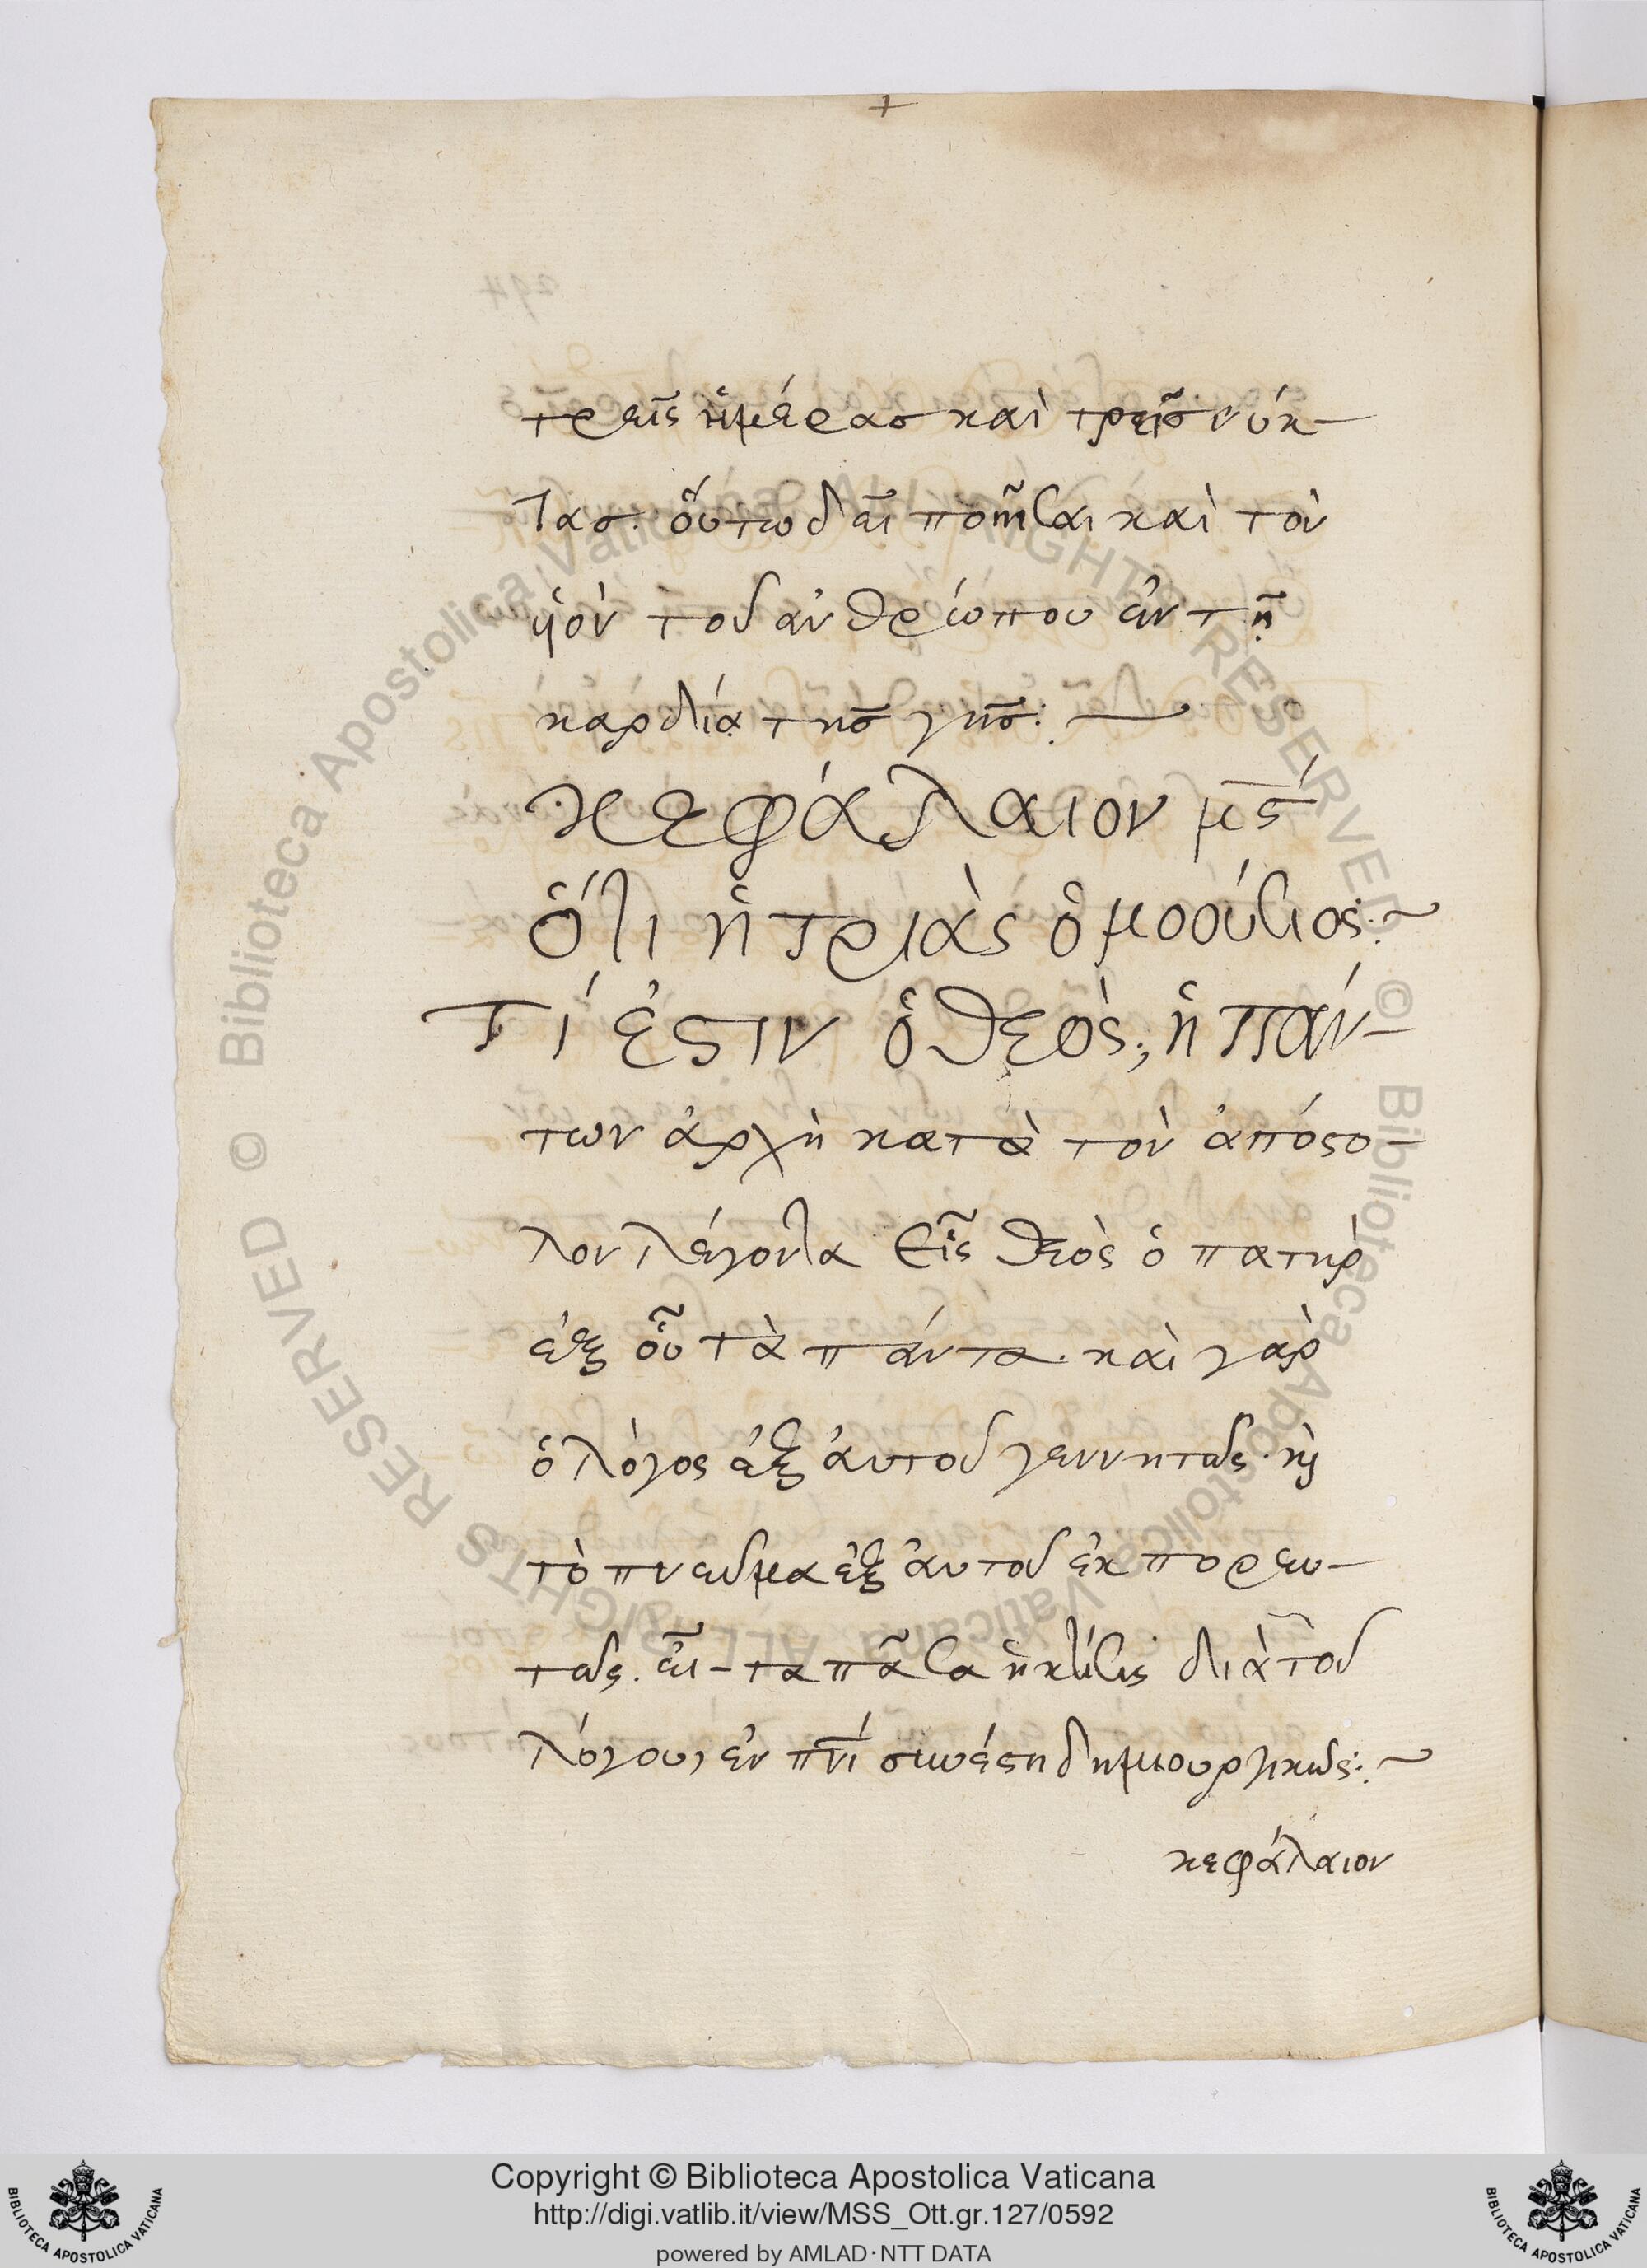 +
τρεῖς ἡμέρας καὶ τρεῖς νύκ-
τας. ὅυτω δεῖ ποιῆσαι καὶ τὸν
ὑιὸν τοῦ ἀνθρώπου ἐν τῇ
καρδίᾳ τῆς γῆς:~
κεφάλαιον μϛ´
ὅτι ἡ τριὰς ὁμοούσιος:~
Τί ἐστιν ὁ θεὸς; ἡ πάν-
των ἀρχὴ κατὰ τὸν ἀπόστο-
λον λέγοντα Εἷς θεὸς ὁ πατὴρ
ἐξ οὗ τὰ πάντα. καὶ γὰρ
ὁ λόγος ἐξ ἀυτοῦ γεννητῶς. κὶ
τὸ πνεῦμα ἐξ ἀυτοῦ ἐκπορευ-
τῶς. εἶ-τα πᾶσα ἡ κτίσις διὰ τοῦ
λόγου, ἐν πνι συνέστη δημιουργικῶς:~
κεφάλαιον
Biblioteca Apostolica Vaticana ALL RIGHTS RESERVED © Biblioteca Apostolica Vaticana ALL RIGHTS RESERVED ©
Copyright © Biblioteca Apostolica Vaticana
http://digi.vatlib.it/view/MSS_Ott.gr.127/0592
powered by AMLAD·NTT DATA
BIBLIOTECA APOSTOLICA VATICANA
BIBLIOTECA APOSTOLICA VATICANA